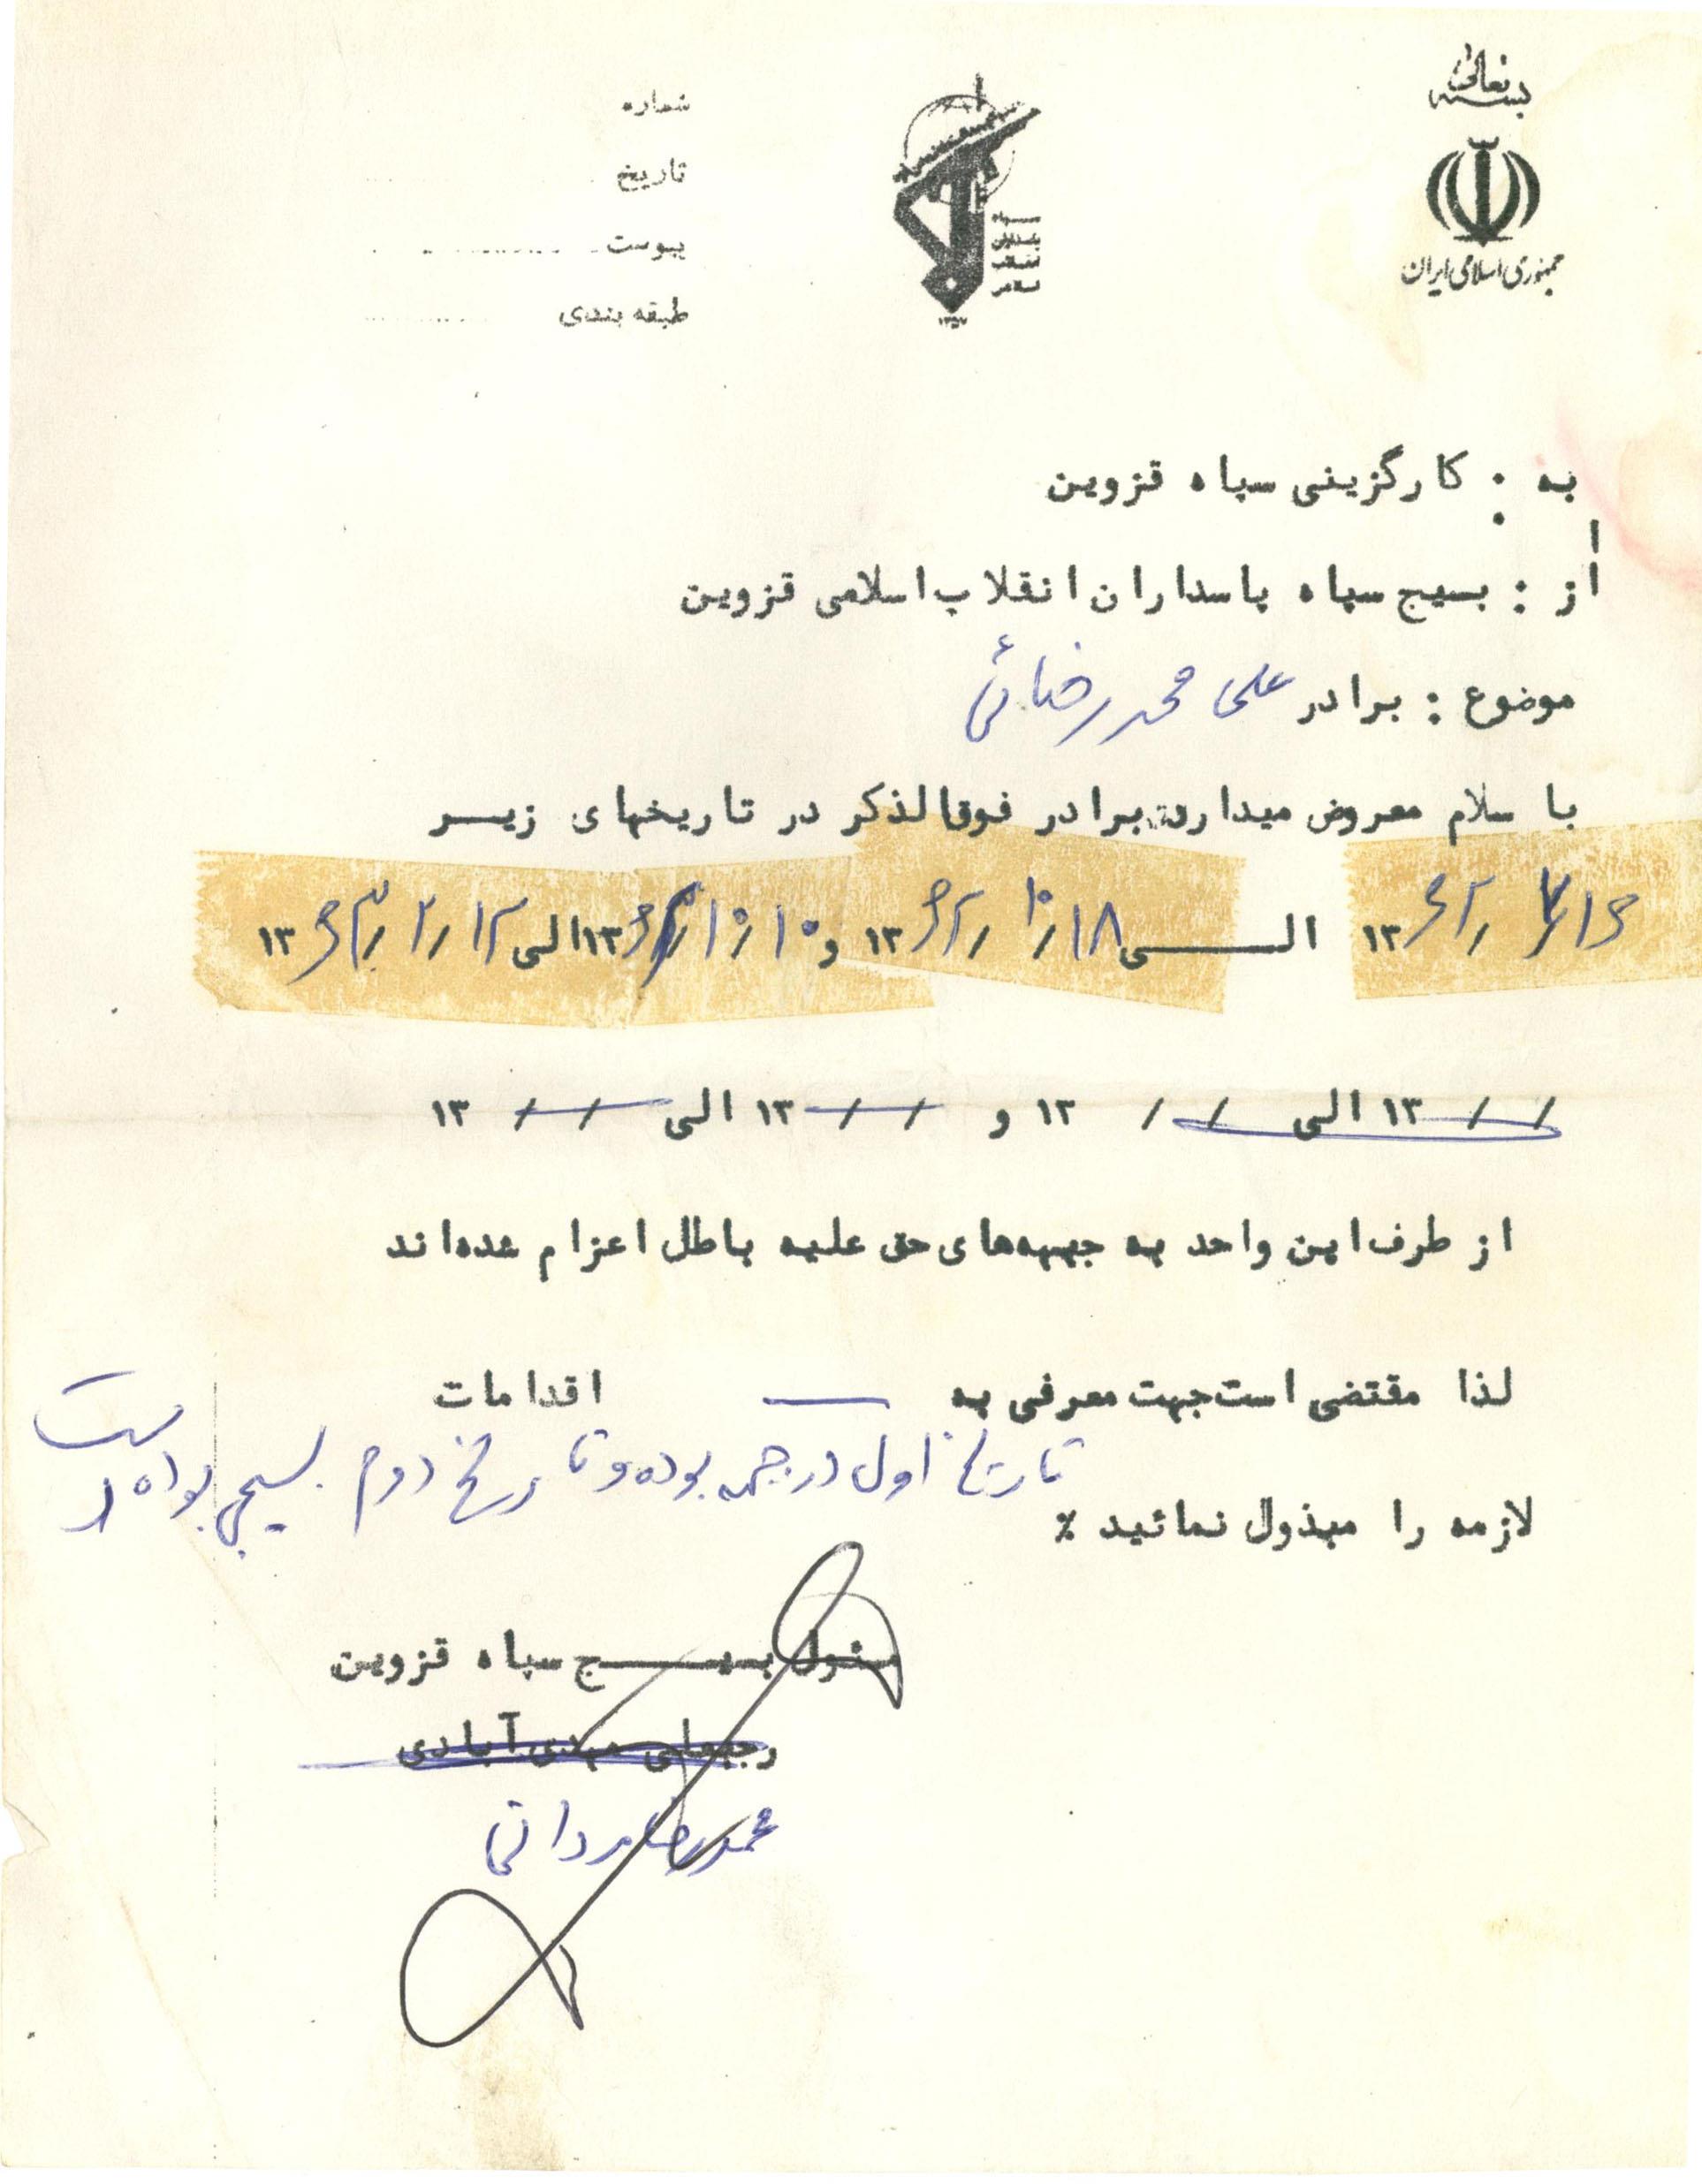 بسمه تعالی
جمهوری اسلامی ایران
سپاه
پاسداران
انقلاب
اسلامی
۱۳۵۷
شماره
تاریخ
پیوست
طبقه بندی
به : کارگزینی سپاه قزوین
از : بسیج سپاه پاسداران انقلاب اسلامی قزوین
موضوع : برادر علی محمد رضائی
با سلام معروض میدارد برادر فوق الذکر در تاریخهای زیر
۱۳۶۲/ ۷/ الی ۱۸/۱۰/ ۱۳۶۲ و ۱۰/۱۰/ ۱۳ الی ۱۲/۲/ ۱۳۶۳
/ / ۱۳ الی / / ۱۳ و / / ۱۳ الی / / ۱۳
از طرف این واحد به جبهه‌های حق علیه باطل اعزام شده‌اند
لذا مقتضی است جهت معرفی به اقدامات
تاریخ اول در جبهه بوده و تاریخ دوم بسیجی بوده است
لازمه را مبذول نمائید ٪
مسئول بسیج سپاه قزوین
رجبعلی مهدی آبادی
محمدرضا مردانی